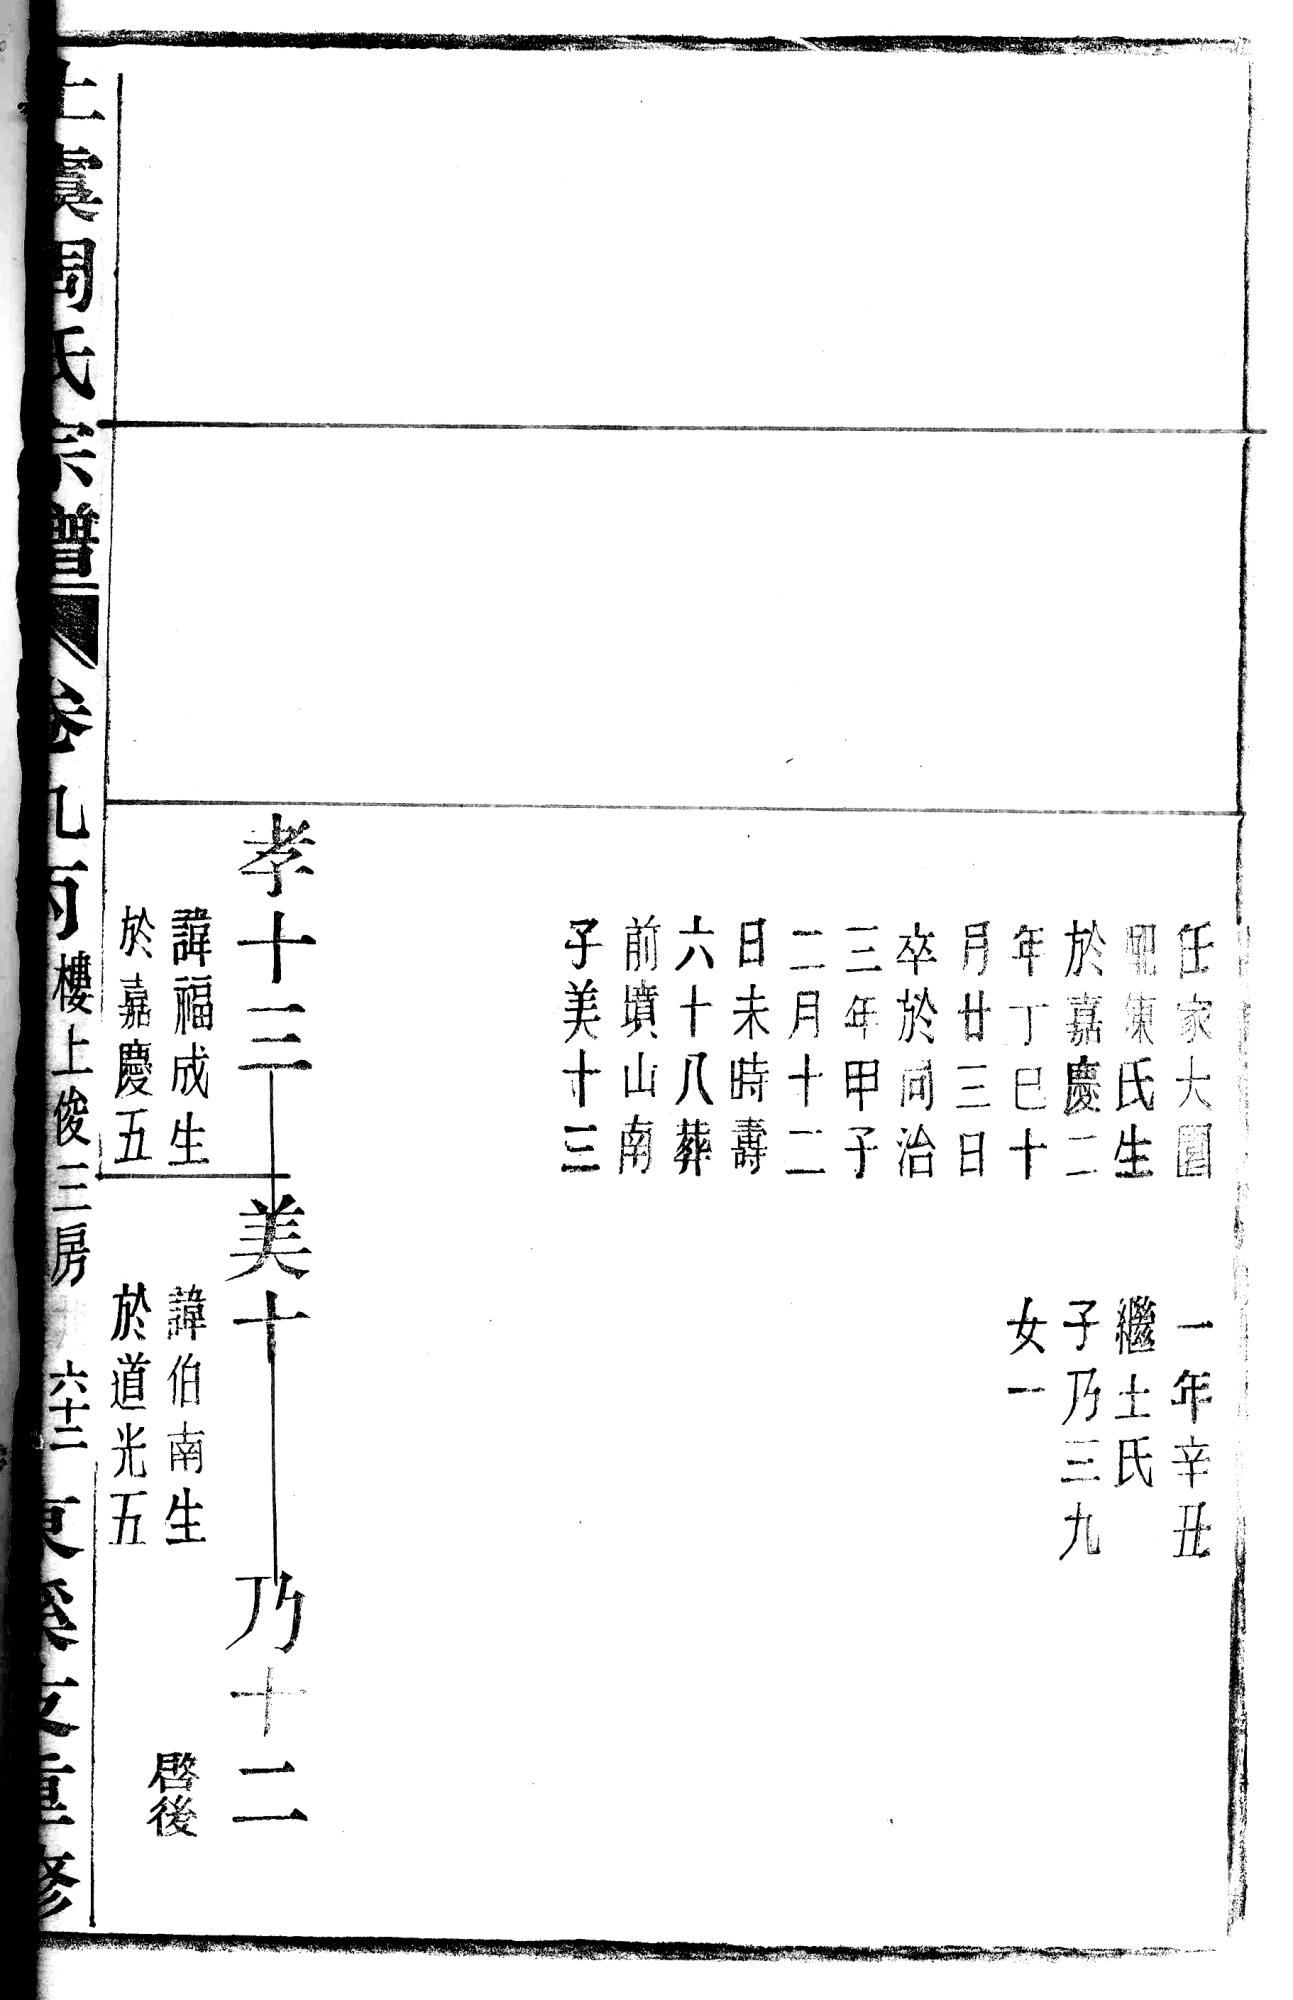 任家大園
配陳氏生
於嘉慶二
年丁巳十
月廿三日
卒於同治
三年甲子
二月十二
日未時壽
六十八葬
前墳山南
子美十三
一年辛丑
繼士氏
子乃三九
女一
孝十三
諱福成生
於嘉慶五
美十
諱伯南生
於道光五
乃十二
啓後
上虞周氏宗譜
卷九丙
樓上俊三房
六十二
東溪支重修